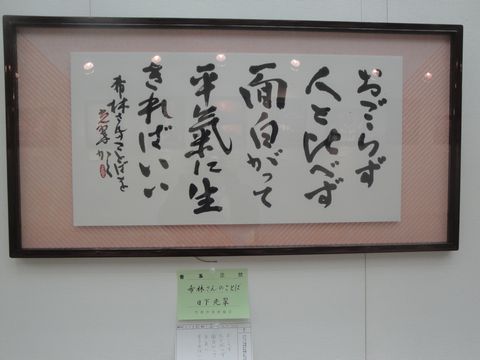 おごらず
人と比べず
面白がって
平氣に生
きればいい
希林さんのことばを
光翠かく
希林さんのことば
日下光翠